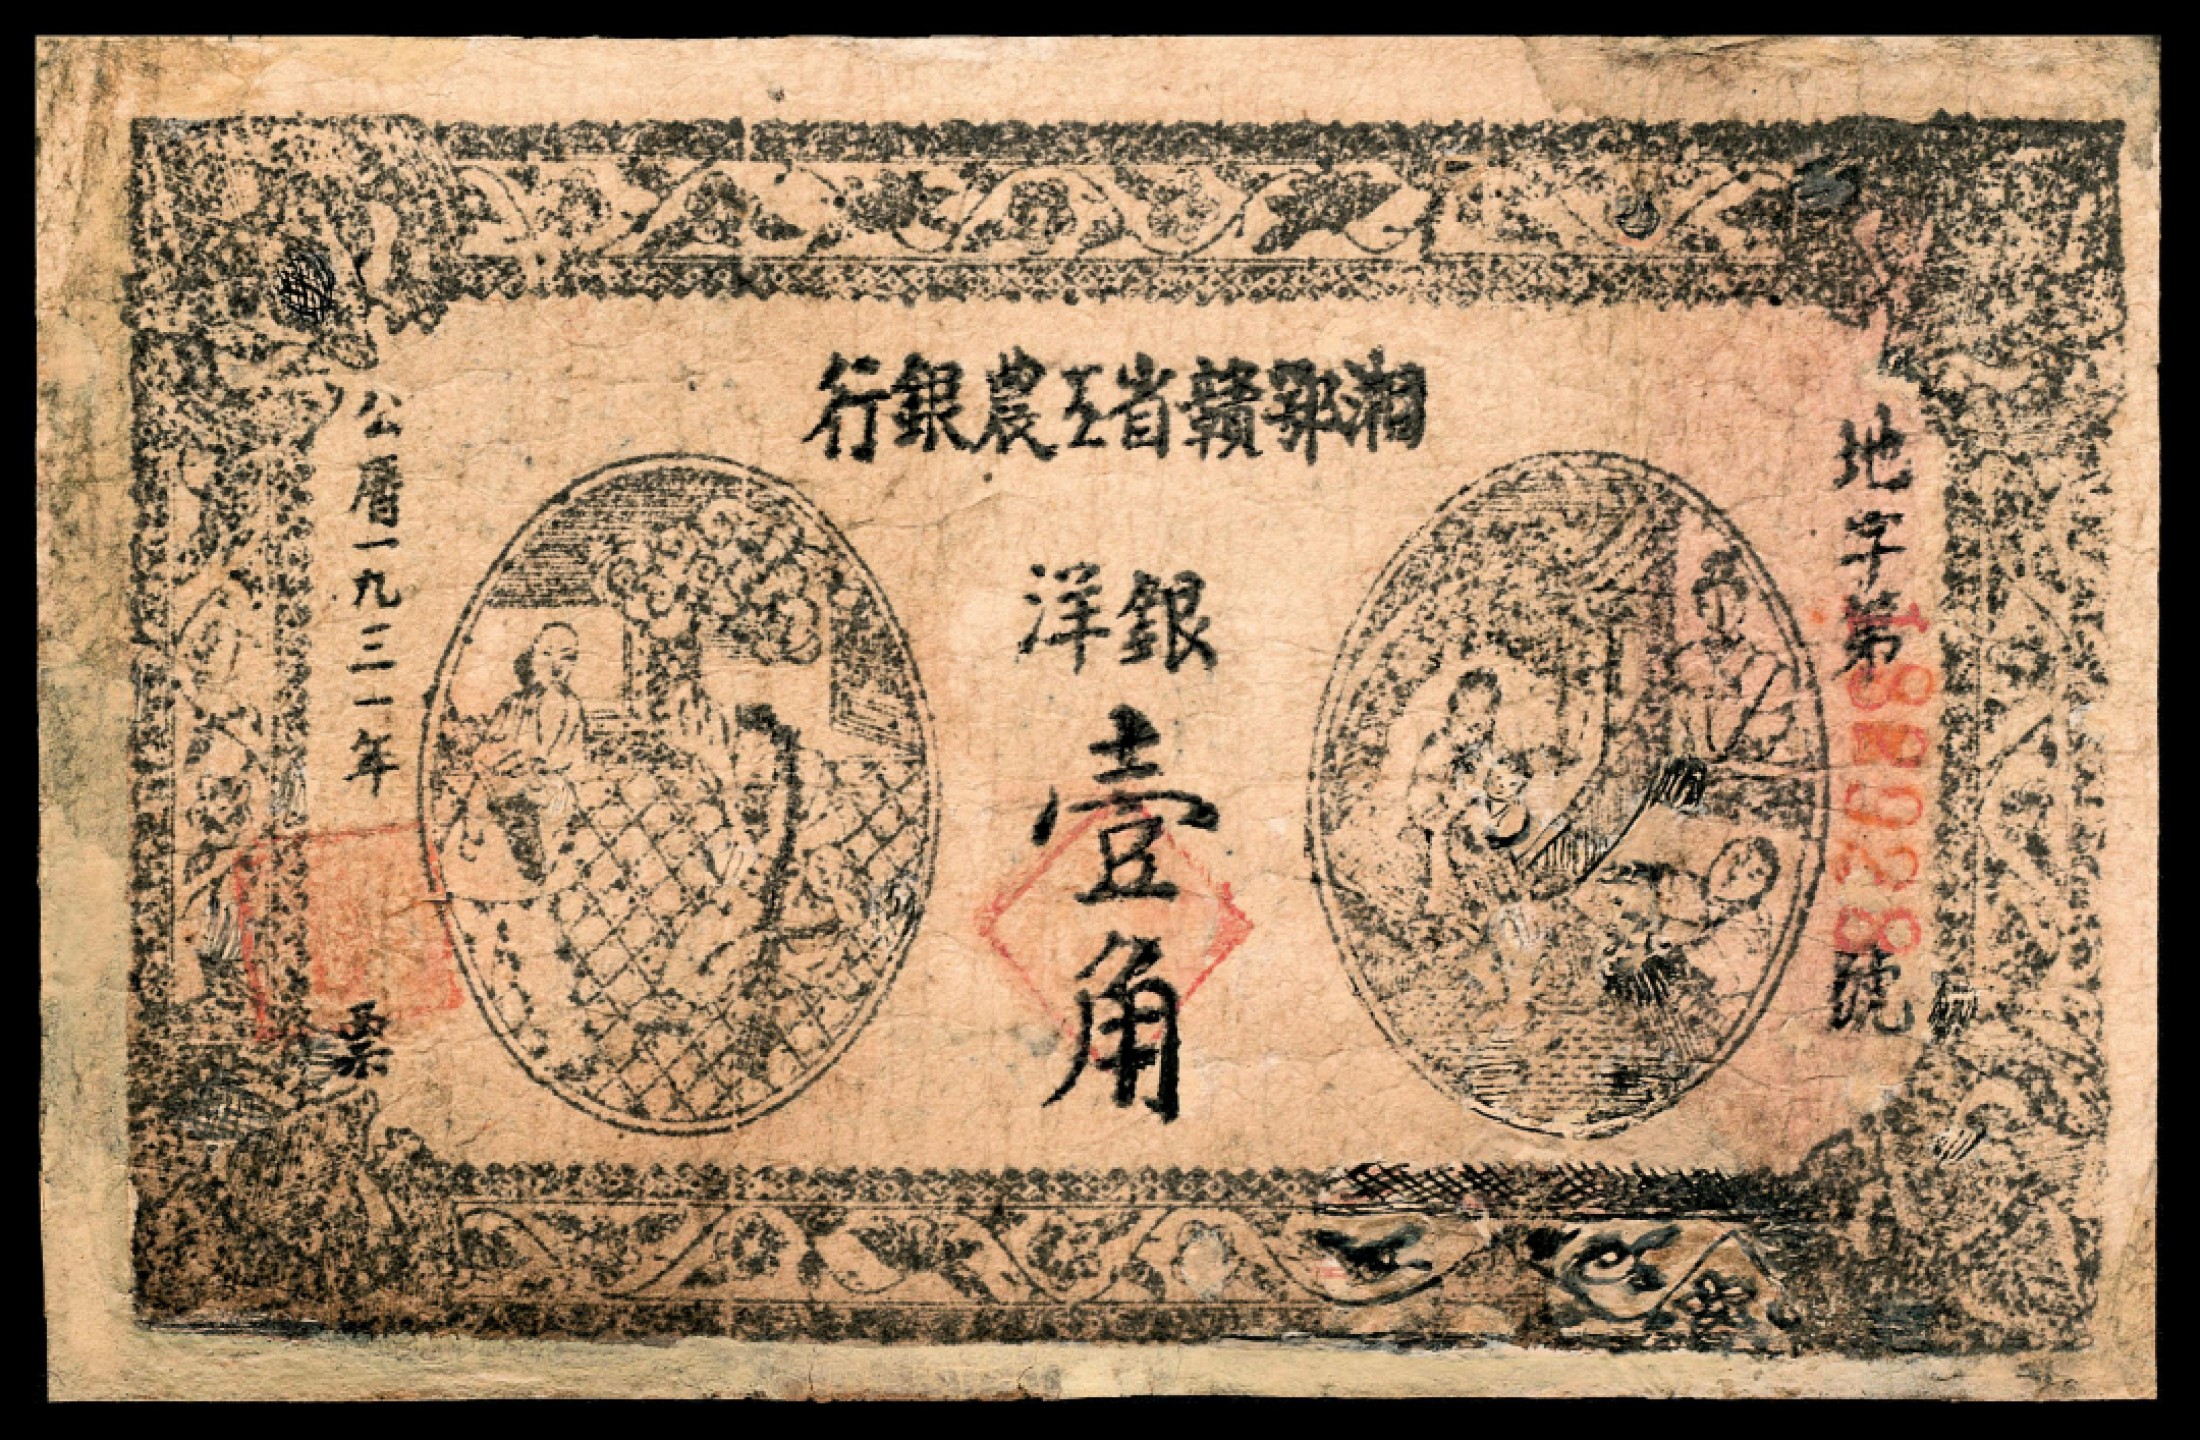 湘鄂贛省工農銀行
地字第
號
銀洋
壹角
公曆一九三一年
票